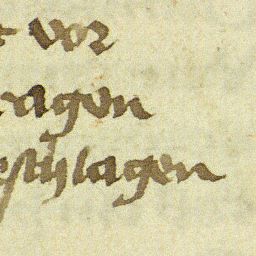 vor
ragen
schlagen